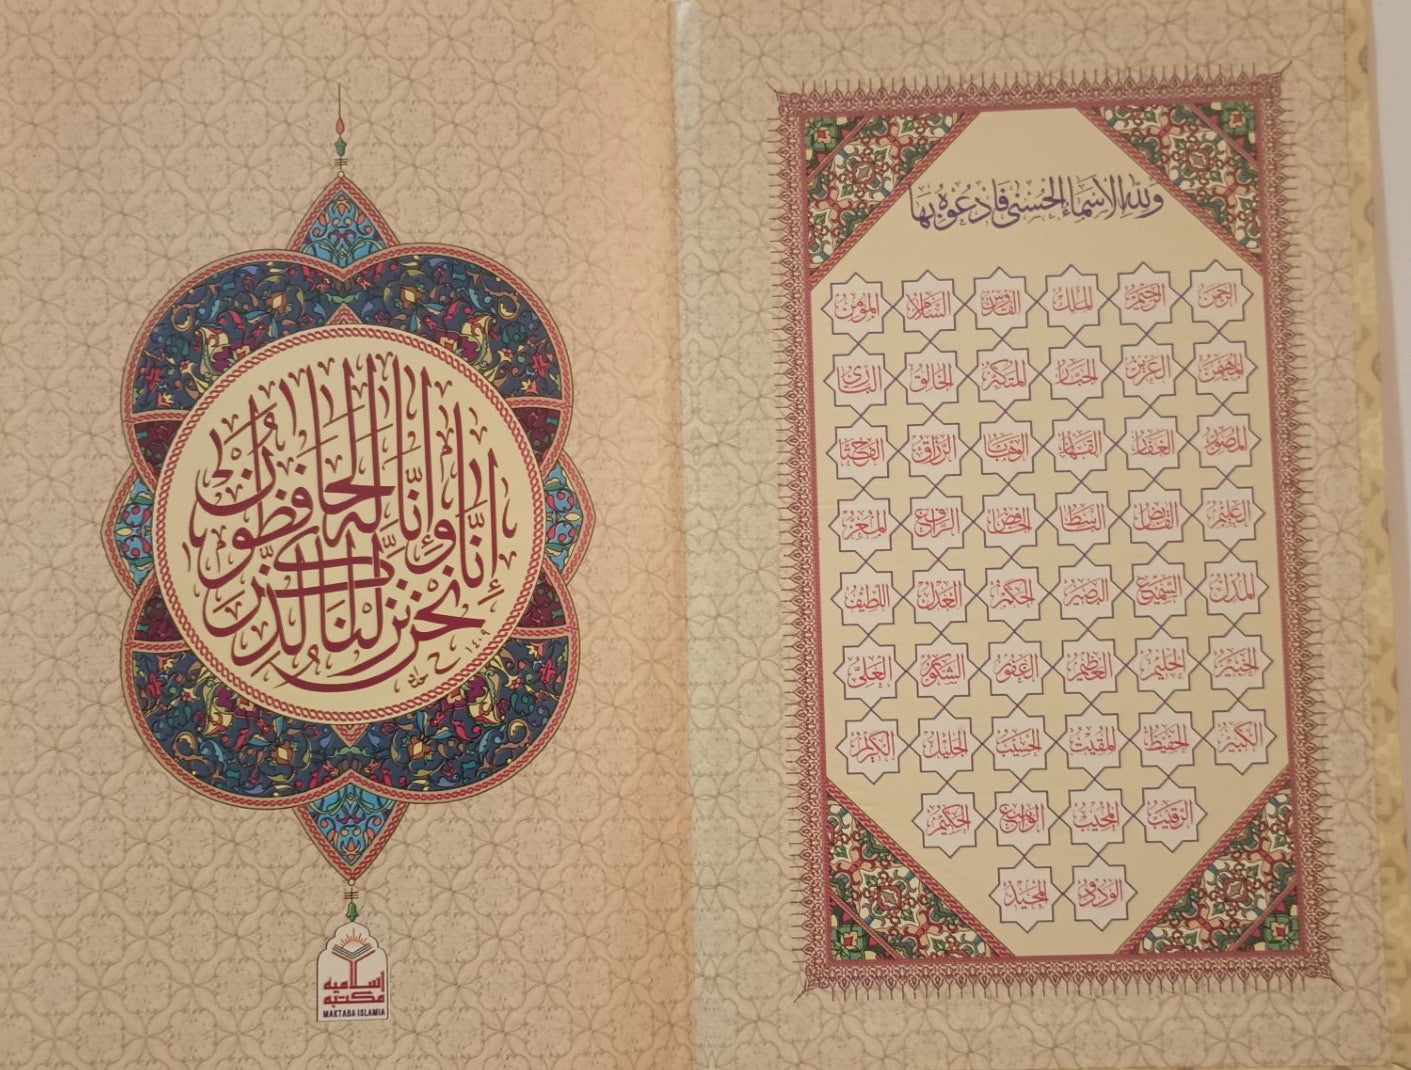 ولله الأسماء الحسنى فادعوه بها
الرحمن الرحيم الملك القدوس السلام المؤمن
المهيمن العزيز الجبار المتكبر الخالق البارئ
المصور الغفار القهار الوهاب الرزاق الفتاح
العليم القابض الباسط الخافض الرافع المعز
المذل السميع البصير الحكم العدل اللطيف
الخبير الحليم العظيم الغفور الشكور العلي
الكبير الحفيظ المقيت الحسيب الجليل الكريم
الرقيب المجيب الواسع الحكيم
الودود المجيد
إِنَّا نحن نزلنا الذكر وإنّا له لحافظون
١٤٠٩
اسلامیہ
مکتبہ
MAKTABA ISLAMIA